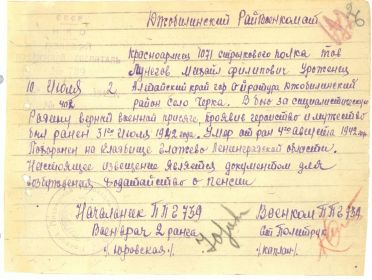 Юкобилинский Райвоенкомат
Красноармеец 1071 стрелкового полка тов
Лунегов Михаил Филипович Уроженец
10 Июля 2 Алтайский край гор Ойратура Юкобилинский
район село Черка. В бою за социалистическую
Родину верный военный присяге, проявив геройство и мужество
был ранен 31го Июля 1942 года. Умер от ран 4го августа 1942 год.
Похоронен на кладбище Ленинградской области.
Настоящее извещение является документом для
возбуждения ходатайство о пенсии
Начальник ППГ 739 Военком ППГ 739
Военврач 2 ранга Ст Политрук
/Юровская/ /Каплан/